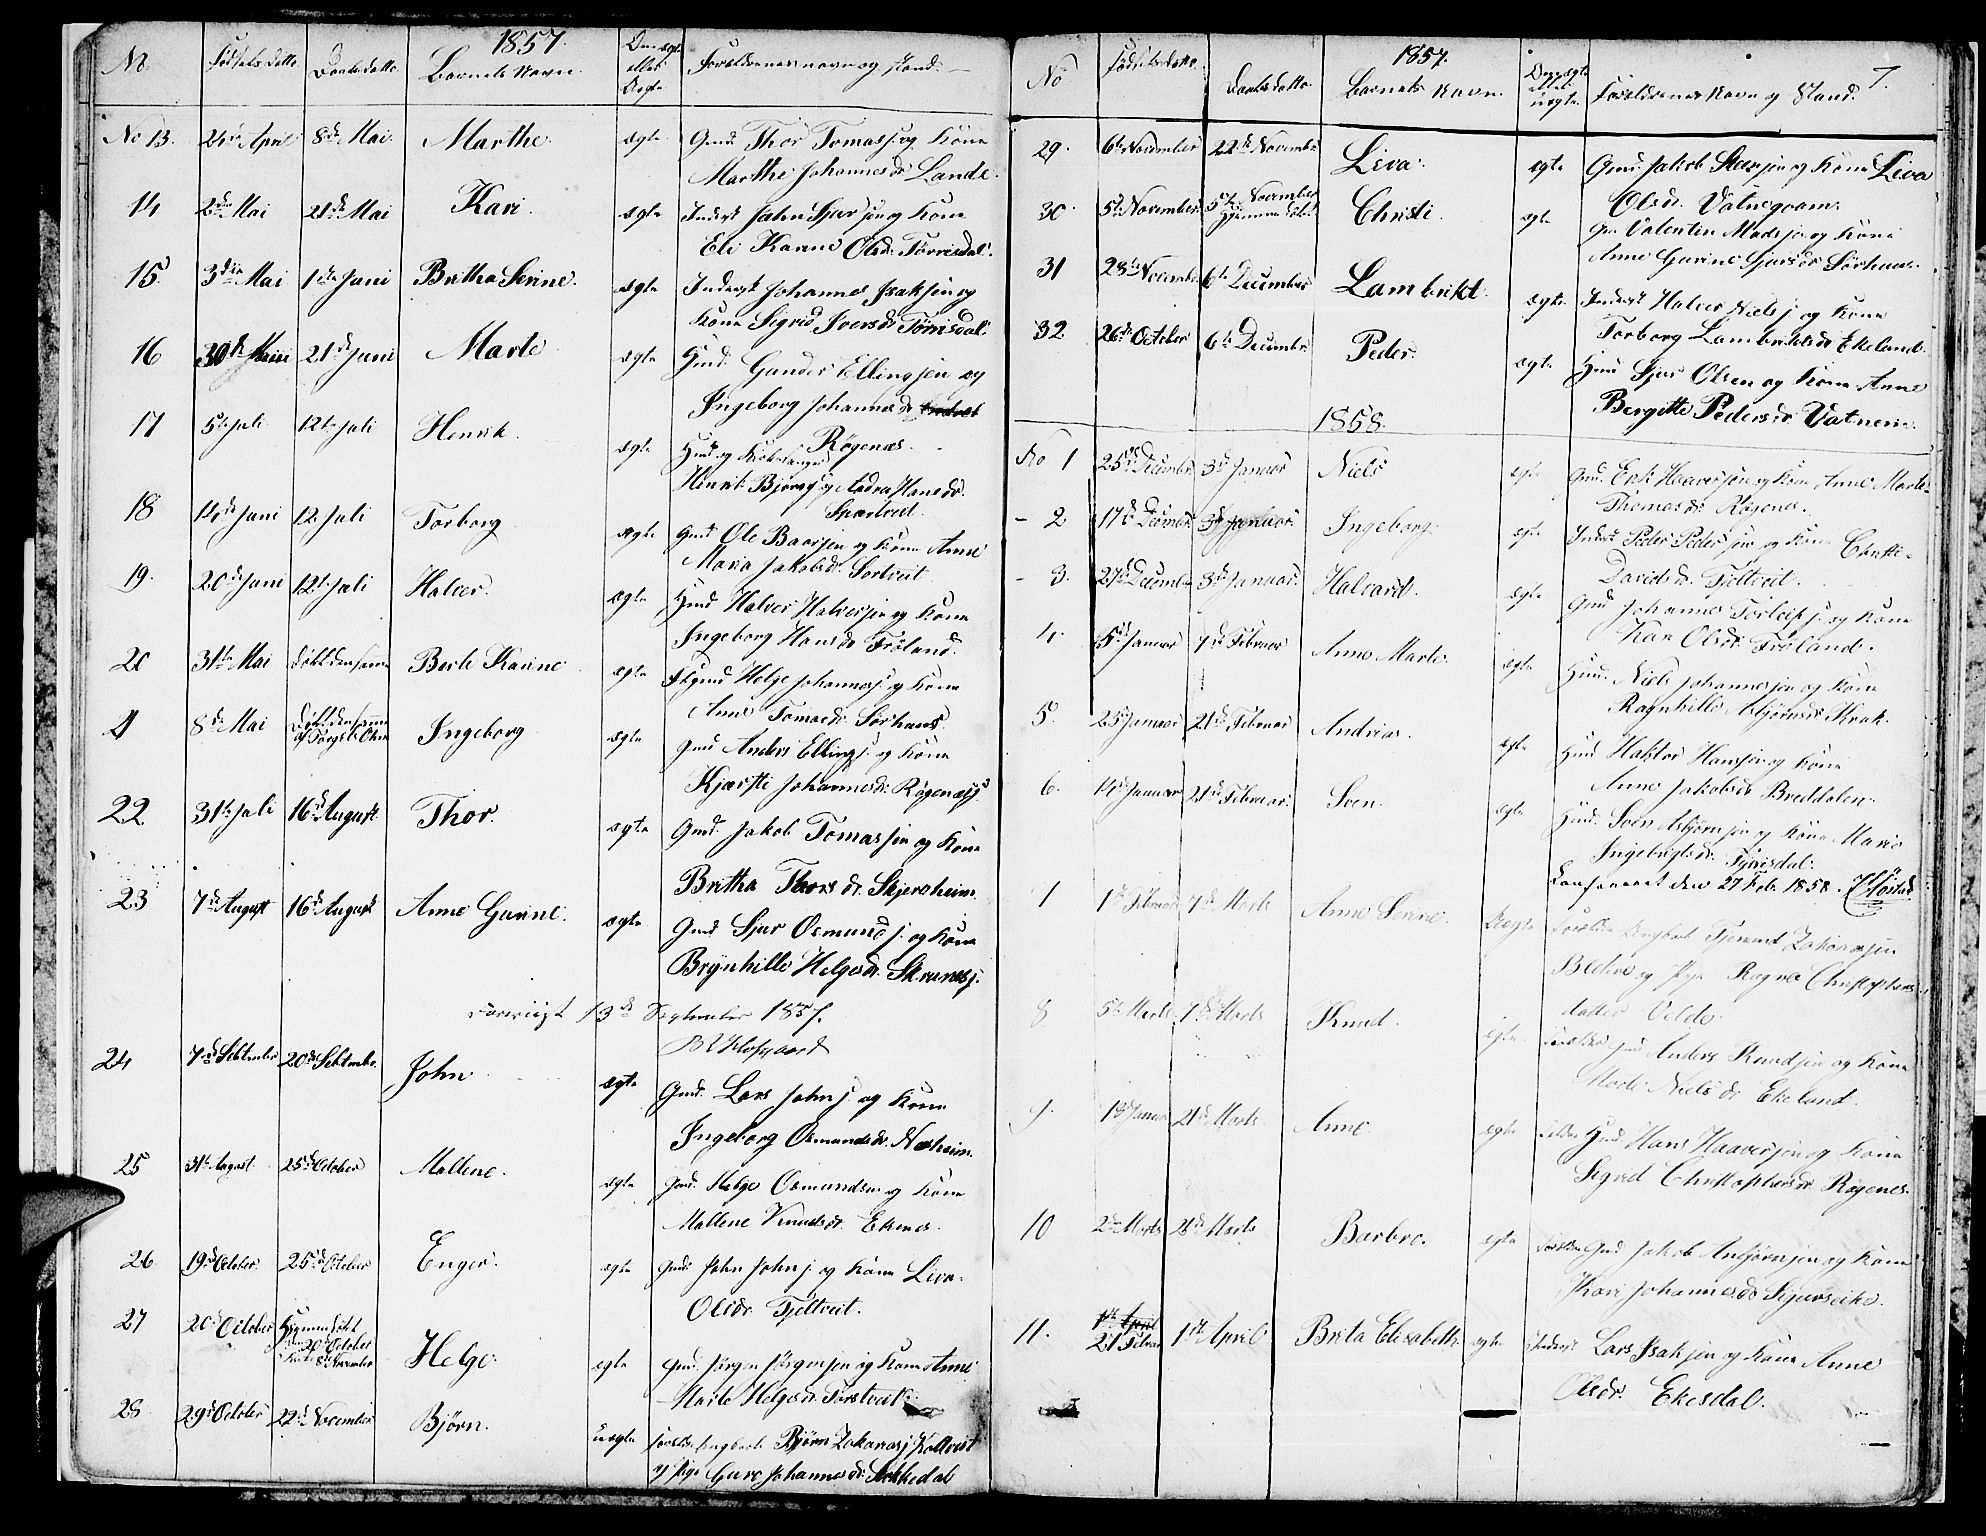 1857.
No. Fødsels datto. Daabsdatto. Barnets Navn. Om ægte eller Uægte Forældrenes navn og stand.
No 13. 24de April 8de Mai. Marthe. ægte Gmd. Thor Tomasj. og Kone
Marthe Johannesdr. Lande.
14 2den Mai 21de Mai Kari. ægte Inderst John Sjursjen og Kone
Eli Karine Olsdr. Tørrisdal.
15. 3die Mai 1ste Juni Britha Serine. ægte Inderst Johannes Isaksjen og
Kone Sigrid Iversdr. Tørrisdal.
16 30de Mai 21de Juni Marte ægte Hmd. Gunder Ellingsjen og
Ingeborg Johannesdr.
Røgenæs.
17 5te Juli 12te Juli Henrik. ægte Hmd og Kirkesanger
Henrik Bjørnsj. og Andrea Hansdr.
Spartveit.
18 14de Juni 12 Juli Torborg ægte Gmd. Ole Baarsjen og Kone Anne
Maria Jakobsdr. Sortveit
19. 20de Juni 12te Juli Halver. ægte Hmd Halver Halversjen og Kone
Ingeborg Hansdr. Frøland.
20 31te Mai Døbt densamme Berte Karine ægte Helge Johannesj. og Kone
Anne Tomasdr. Sørhuus.
21 8de Mai Døbt densamme af Torgils Olsen Ingeborg ægte Gmd Anders Ellingsj. og Kone
Kjærsti Johannesdr. Røgenæs.
22 31te Juli 16de August Thor. ægte Gmd. Jakob Tomassjen og Kone
Britha Thorsdr. Skjersheim.
23 7de August 16de August Anne Gurine. ægte Gmd Sjur Osmundsj. og Kone
Brynhille Helgesdr. Skrunes.
13de September 1857.
24 7de Sebtember 20de Sebtember. John ægte Gmd. Lars Johnsj. og Kone
Ingeborg Osmundsdr. Næsheim.
25 31te August 25de October Mallene. ægte Gmd. Helge Osmundsen og Kone
Mallene Knudsdr. Ekenes.
26 19de October 25de October Enger. ægte Gmd. John Johnsj. og Kone Liva
Olsdr. Tjeltveit.
27 20de October Hjemmedøbt den 20de October 8de November Helge. ægte Gmd. Jørgen Jørgensjen og Kone Anne
Marte Helgesdr. Torstveit.
28 29de October 22de November Bjørn. uægte Foreldre Ungkarl Bjørn Zakariasj. Koltveit
og Pige Guro Johannesdr. Sekkedal
1857. 7.
No Fødselsdatto. Daabsdatto. Barnets Navn. Om ægte eller uægte. Forældrenes Navn og Stand.
29. 6te November 22de November Liva. ægte Gmd. Jakob Steensjen og Kone Liva
Olsdr. Vatnegaam.
30. 5te November. 5te November Hjemmedøbt Christi. ægte Gm. Valentin Madsjen og Kone
Anne Gurine Sjursdr. Sørhuus.
31 28de November 6te December Lambrikt. ægte Inderst Halver Nielsj. og Kone
Torborg Lambriktsdr. Ekeland.
32 26de October 6te December Peder. ægte Hmd Sjur Olsen og Kone Anne
Bergitte Pedersdr. Vatnene.
1858.
No 1 25de December 3de Januar Niels ægte Gmd. Erik Haaversjen og Kone Anne Marte
Thomasdr. Røgenes.
- 2 17de December 3de Januar. Ingeborg. ægte Inderst Peder Pedersjen og Kone Christi
Davidsdr. Tjeltveit.
- 3. 27de December 3de Januar. Halvard. ægte Gmd Johannes Torleifsj. og Kone
Kari Olsdr. Frøland.
4. 5te Januar 7de Februar Anne Marte. ægte Hmd. Niels Johannesjen og Kone
Ragnhille Asbjørnsdr. Skrak.
5. 25 Januar 21de Februar Andreas. ægte Hmd Haktor Hansjen og Kone
Anne Jakobsdr. Breddalen.
6. 14de Januar 21de Februar. Sven. ægte Hmd. Sven Asbjørnsjen og Kone Marie
Ingebrigtsdr. Tørrisdal.
Confereret den 27 Feb. 1858.
7 1ste Februar 7de Marts Anne Serine. Uægte Foreldre Ungkarl Tjerand Zakariasjen
og Pige Ragna Christophersdatter Velde
8 5te Marts 7de Marts Knud. ægte Foreldre Gmd Anders Knudsjen og Kone
Marte Nielsdr. Ekeland.
9. 18 Januar 21de Marts. Anne. ægte Hmd. Hans Haaversjen og Kone
Sigrid Christophersdr. Røgenes.
10 2den Marts 21de Marts Barbro. ægte Foreldre Gmd Jakob Asbjørnsjen og Kone
Kari Johannesdr. Skjerseike.
11. 21 Februar 1ste April Brita Elisabeth. ægte Inderst Lars Isaksjen og Kone Anne
Olsdr. Ekesdal.